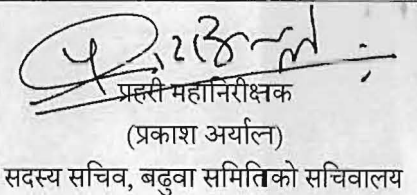 प्रहरी महानिरीक्षक
(प्रकाश अर्याल)
सदस्य सचिव, बढुवा समितिको सचिवालय